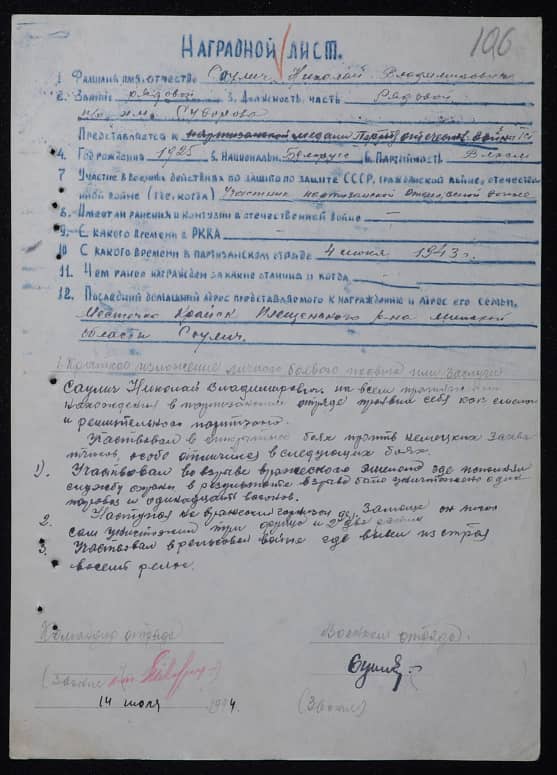 106
НАГРАДНОЙ ЛИСТ.
1. Фамилия имя, отчество Саулич Николай Владимирович
2. Звание рядовой 3. Должность, часть Рядовой
п/о им. Суворова
Представляется к партизанской медали
4. Год рождения 1925 5. Национальн. Белорус 6. Партийность
7 Участие в боевых действиях по защите по защите СССР, гражданской войне, отечествен
ной войне (где, когда) Участник партизанской Отечественной войне
8. Имеет ли ранения и контузии в отечественной войне –
9. С какого времени в РККА –
10 С какого времени в партизанском отряде 4 июня 1943 г.
11. Чем ранее награжден за какие отличия и когда –
12. Последний домашний адрес представляемого к награждению и адрес его семьи.
Местечко Крайск Плещенского р-на минской
области Саулич.
1 Краткое изложение личного боевого подвига или заслуги
Саулич Николай Владимирович на всем протяжении
нахождения в партизанском отряде проявил себя как смелый
и решительный партизан.
Участвовал в боях против немецких захва
тчиков, особо отличился в следующих боях.
1). Участвовал во взрыве вражеского эшелона где
службу охраны в результате взрыва было уничтожено один
паровоз и одинадцать вагонов.
2. Наступая на вражеский гарнизон дер. Замошье он лично
сам уничтожил три и два
3. Участвовал в рельсовой войне где вывел из строя
восемь рельс.
Командир отряда
Военком отряда.
(Звание
(Звание)
14 июля 1944